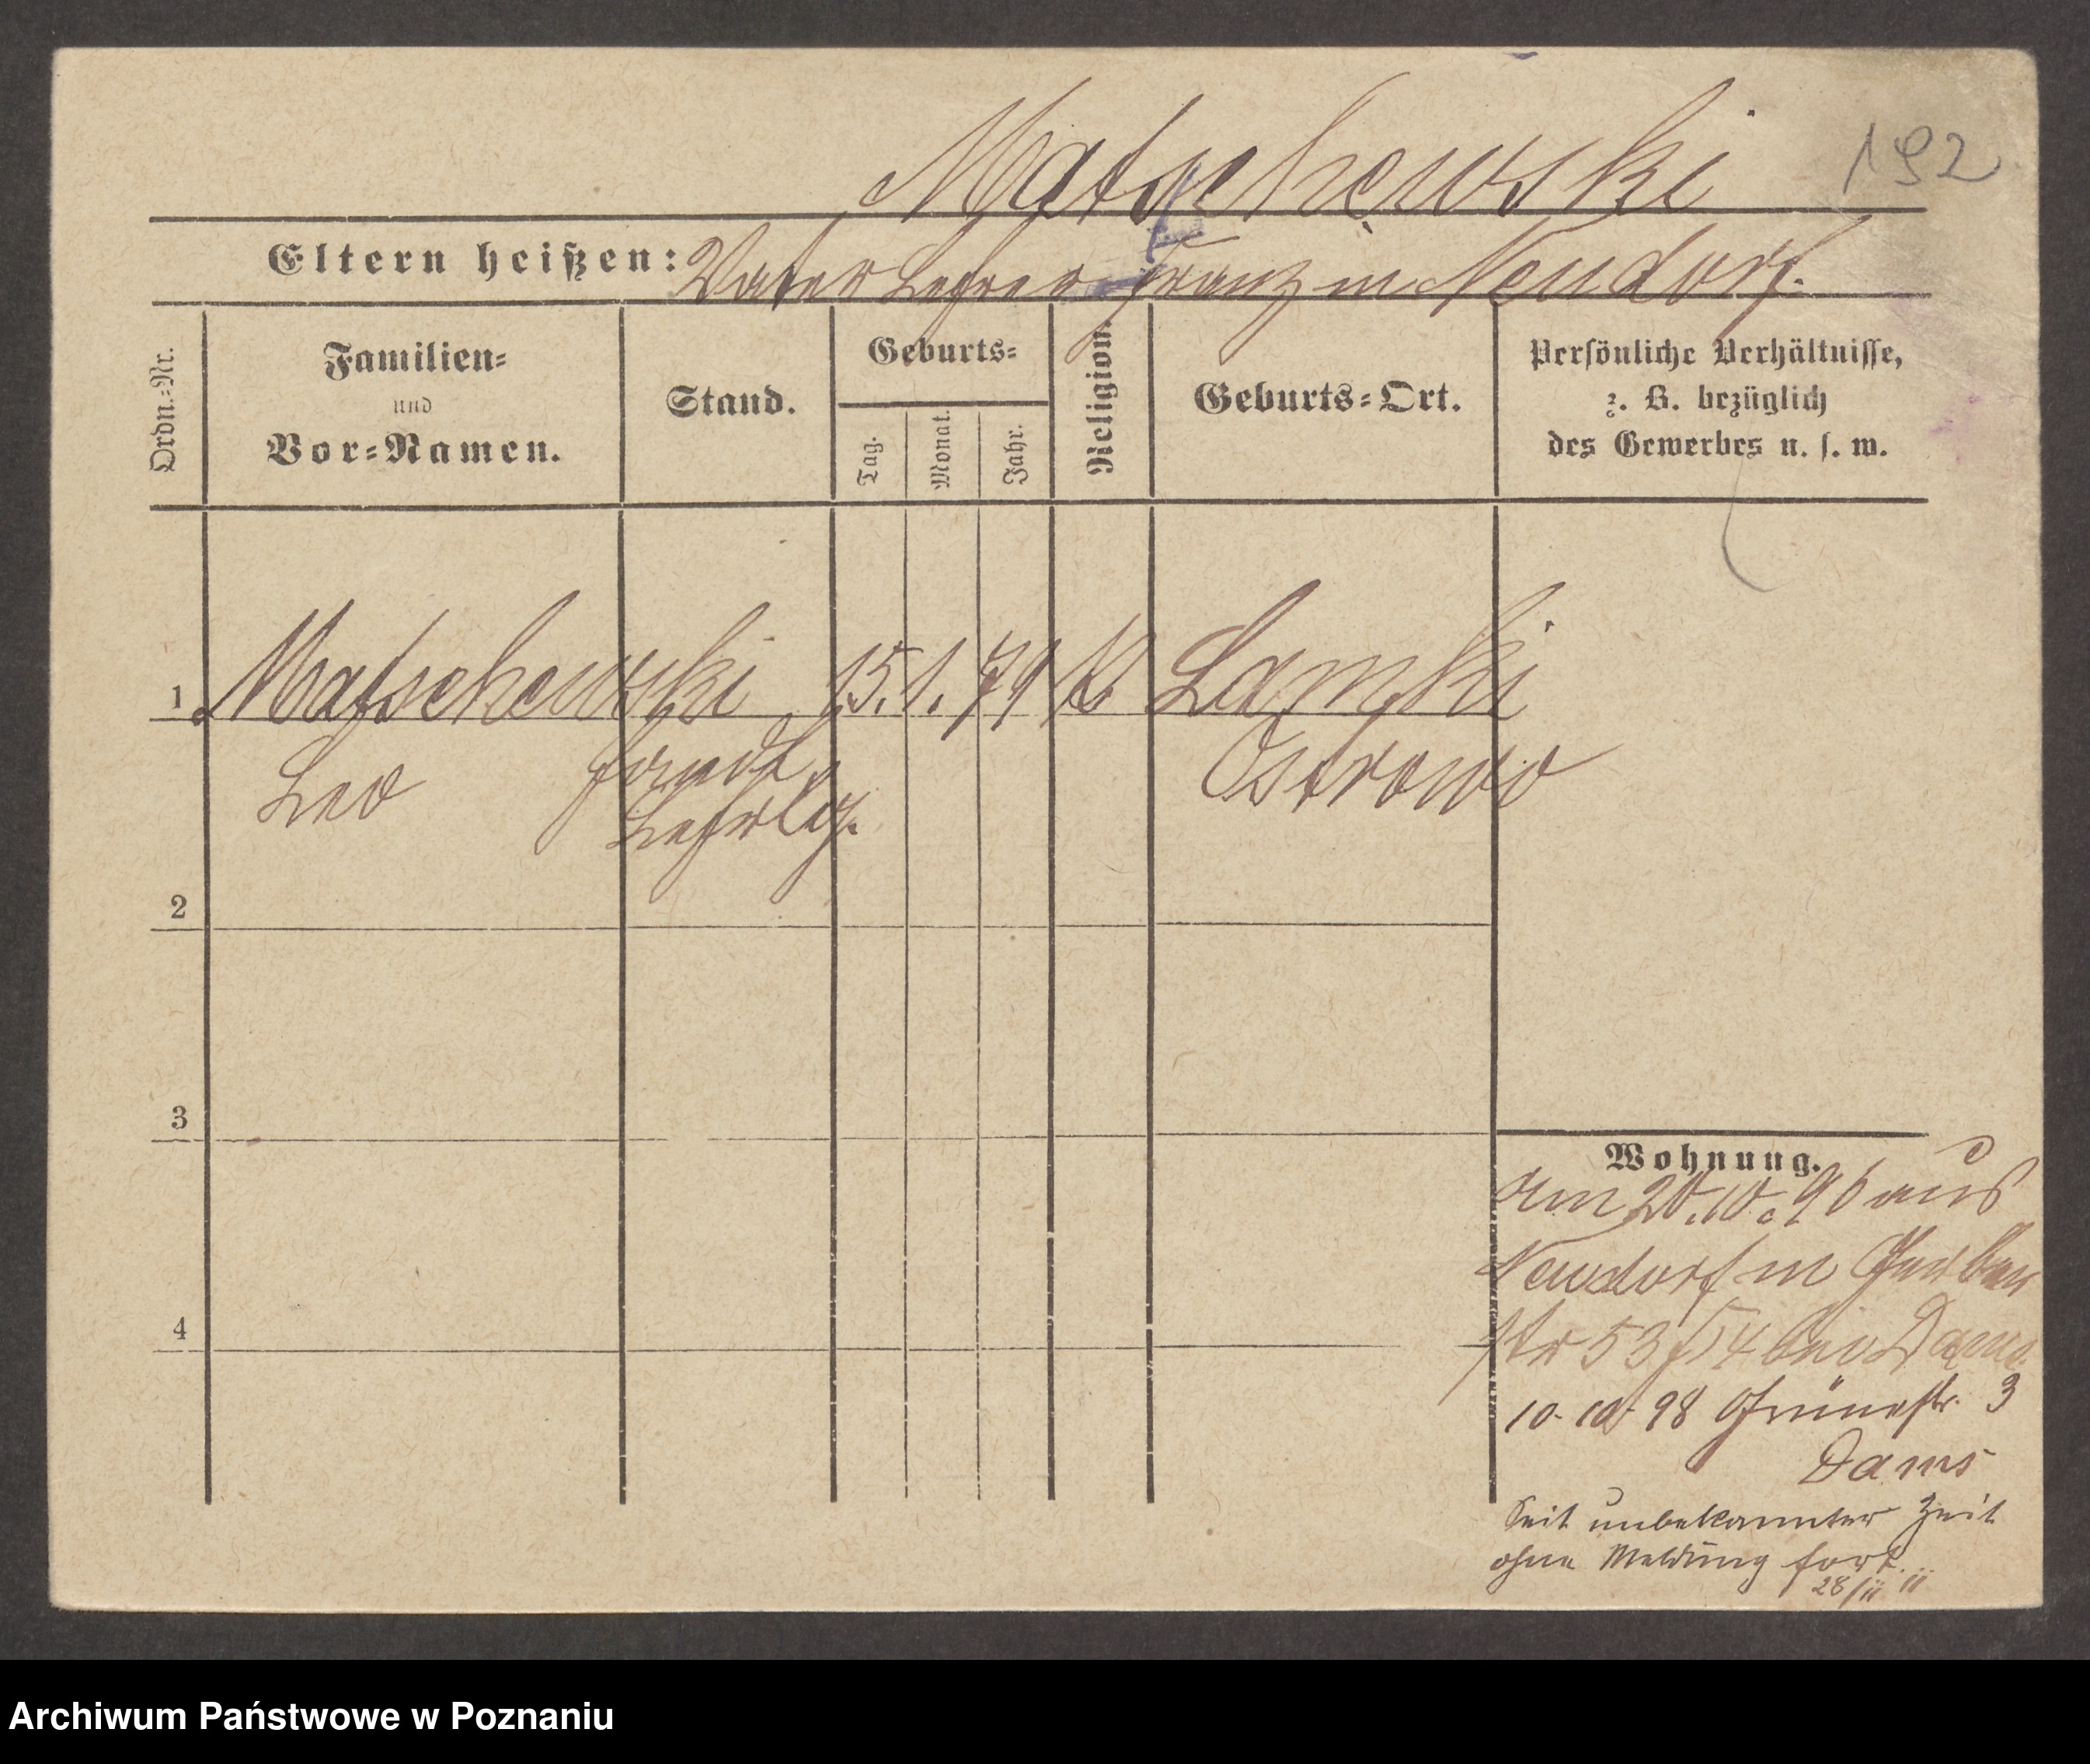 Matschewski
192
Eltern heißen: Vater Lehrer Franz in Neudorf.
Ordn.-Nr.
Familien-
und
Vor-Namen.
Stand.
Geburts-
Tag.
Monat.
Jahr.
Religion.
Geburts-Ort.
Persönliche Verhältnisse,
z. B. bezüglich
des Gewerbes u. s. w.
1 Matschewski 15. 1. 79 K Lamki
Leo Lehrlg. Ostrowo
2
3
4
Wohnung.
am 20.10.96 aus
Neudorf in Gerber
str 53/54 bei Dams
10. 10. 98 Grünestr. 3
Dams
Seit unbekannter Zeit
ohne Meldung fort.
28/11 11
Archiwum Państwowe w Poznaniu